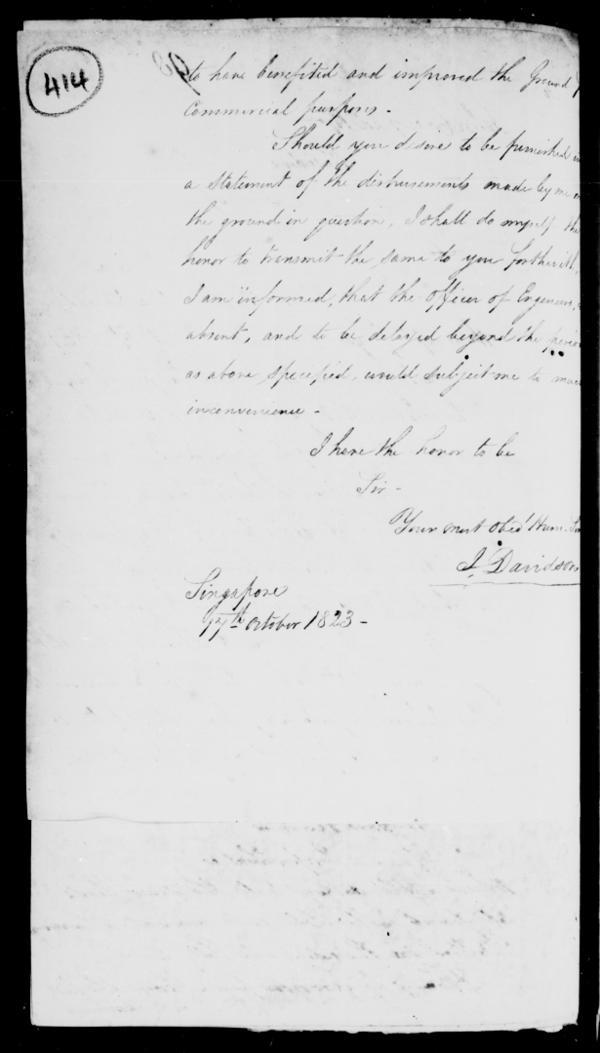 414
to have benefited and improved the Ground
Commercial purposes -
Should you desire to be furnished
a Statement of the disbursements made by me
the ground in question, I shall do myself the
honor to transmit the same to you forthwith,
I am informed, that the officer of Engineers,
absent, and to be delayed beyond the
as above specified, would subject me to
inconvenience -
I have the honor to be
Sir -
Your most obed! Hum.
J. Davidson
Singapore
October 1823 -